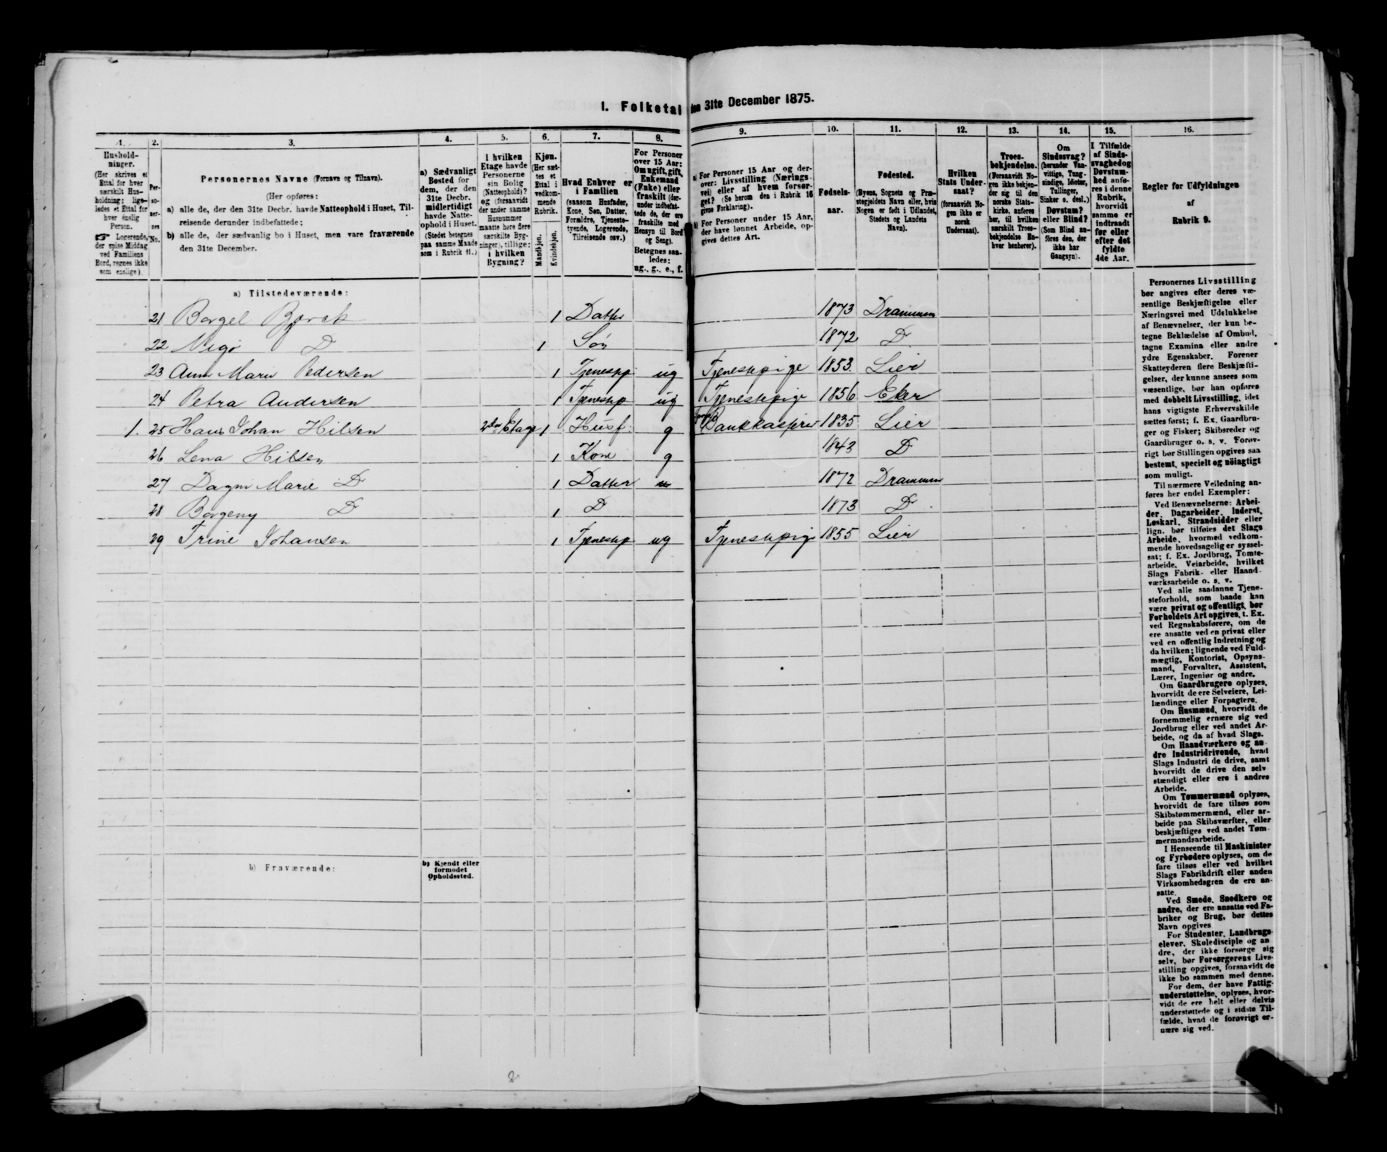 I. Folketal den 31te December 1875.
1. 2. 3. 4. 5. 6. 7. 8. 9. 10. 11. 12. 13. 14. 15. 16.
Husholdninger.
(Her skrives et Ettal for hver særskilt Husholdning; ligeledes et Ettal for hver enslig Person.
Logerende, der spise Middag ved Familiens Bord, regnes ikke som enslige).
Personernes No.
Personernes Navne (Fornavn og Tilnavn).
(Her opføres:
a) alle de, der den 31te Decbr. havde Natteophold i Huset, Tilreisende derunder indbefattede;
b) alle de, der sædvanlig bo i Huset, men vare fraværende den 31te December.
a) Sædvanligt Bosted for dem, der den 31te Decbr. midlertidigt havde Natteophold i Huset.
(Stedet betegnes paa samme Maade som i Rubrik 11.)
I hvilken Etage havde Personerne sin Bolig (Natteophold)? og (forsaavidt der under samme Husnummer maatte høre flere særskilte Bygninger), tillige: i hvilken Bygning?
Kjøn.
(Her sættes et Ettal i vedkommende Rubrik.
Mandkjøn. Kvindekjøn.
Hvad Enhver er i Familien
(saasom Husfader, Kone, Søn, Datter, Forældre, Tjenestetyende, Logerende, Tilreisende osv.)
For Personer over 15 Aar: Om ugift, gift, Enkemand (Enke) eller fraskilt (derunder indbefattede de, der ere fraskilte med Hensyn til Bord og Seng).
Betegnes saaledes: ug., g., e., f.
a) For Personer 15 Aar og derover: Livsstilling (Næringsvei) eller af hvem forsørget? (Se herom den i Rubrik 16 givne Forklaring).
b) For Personer under 15 Aar, der have lønnet Arbeide, opgives dettes Art.
Fødselsaar.
Fødested.
(Byens, Sognets og Præstegjeldets Navn eller, hvis Nogen er født i Udlandet, Stedets og Landets Navn).
Hvilken Stats Undersaat?
(forsaavidt Nogen ikke er norsk Undersaat).
Troesbekjendelse.
(Forsaavidt Nogen ikke bekjender sig til den norske Statskirke, anføres her, til hvilken særskilt Troesbekjendelse Enhver henhører).
Om Sindssvag? (herunder Vanvittige, Tungsindige, Idioter, Tullinger, Sinker o. desl.) Døvstum? eller Blind? (Som Blind anføres den, der ikke har Gangsyn).
I Tilfælde af Sindssvaghed og Døvstumhed anføres i denne Rubrik, hvorvidt samme er indtraadt før eller efter det fyldte 4de Aar.
Regler for Udfyldningen
af
Rubrik 9.
a) Tilstedeværende:
21 Borgel Bjørsk 1 Datter 1873 Drammen
22 Vigo D 1 Søn 1872 D
23 Anne Marie Pedersen 1 Tjenestp ug Tjenestpige 1853 Lier
24 Petra Andersen 1 Tjenestp ug Tjenestpige 1856 Eker
1. 25 Hans Johan Hilsen 2den Etage 1 Husf g 1835 Lier
26 Lena Hilsen 1 Kone g 1843 D
27 Dagni Marie D 1 Datter 1872 Drammen
28 Borgeny D 1 D 1873 D
29 Trine Johansen 1 Tjenestp ug Tjenestpige 1855 Lier
b) Fraværende:
b) Kjendt eller formodet Opholdssted.
Personernes Livsstilling
bør angives efter deres væ-
sentlige Beskjæftigelse eller
Næringsvei med Udelukkelse
af Benævnelser, der kun be-
tegne Beklædelse af Ombud,
tagne Examina eller andre
ydre Egenskaber. Forener
Skatteyderen flere Beskjæfti-
gelser, der kunne ansees som
væsentlige, bør han opføres
med dobbelt Livsstilling, idet
hans vigtigste Erhvervskilde
sættes først; f. Ex. Gaardbru-
ger og Fisker; Skibsreder og
Gaardbruger o. s. v. Forøv-
rigt bør Stillingen opgives saa
bestemt, specielt og nøiagtigt
som muligt.
Til nærmere Veiledning an-
føres her endel Exempler:
Ved Benævnelserne: Arbei-
der, Dagarbeider, Inderst,
Løskarl, Strandsidder eller
lign. bør tilføies det Slags
Arbeide, hvormed vedkom-
mende hovedsagelig er syssel-
sat; f. Ex. Jordbrug, Tomte-
arbeide, Veiarbeide, hvilket
Slags Fabrik- eller Haand-
værksarbeide o. s. v.
Ved alle saadanne Tjene-
steforhold, som baade kan
være privat og offentligt, bør
Forholdets Art opgives, t. Ex.
ved Regnskabsførere, om de
ere ansatte ved en privat eller
ved en offentlig Indretning og
da hvilken; lignende ved Fuld-
mægtig, Kontorist, Opsyns-
mand, Forvalter, Assistent,
Lærer, Ingeniør og andre.
Om Gaardbrugere oplyses,
hvorvidt de ere Selveiere, Lei-
lændinge eller Forpagtere.
Om Husmænd, hvorvidt de
fornemmelig ernære sig ved
Jordbrug eller ved andet Ar-
beide, og da af hvad Slags.
Om Haandværkere og an-
dre Industridrivende, hvad
Slags Industri de drive, samt
hvorvidt de drive den selv-
stændigt eller ere i andres
Arbeide.
Om Tømmermænd oplyses,
hvorvidt de fare tilsøs som
Skibstømmermænd, eller ar-
beide paa Skibsværfter, eller
beskjæftiges ved andet Tøm-
mermandsarbeide.
I Henseende til Maskinister
og Fyrbødere oplyses, om de
fare tilsøs eller ved hvilket
Slags Fabrikdrift eller anden
Virksomhedsgren de ere an-
satte.
Ved Smede, Snedkere og
andre, der ere ansatte ved Fa-
briker og Brug, bør dettes
Navn opgives
For Studenter, Landbrugs-
elever, Skoledisciple og an-
dre, der ikke forsørge sig
selv, bør Forsørgerens Livs-
stilling opgives, forsaavidt de
ikke bo sammen med denne.
For dem, der have Fattig-
understøttelse, oplyses, hvor-
vidt de ere helt eller delvis
understøttede og i sidste Til-
fælde, hvad de forøvrigt er-
nære sig ved.